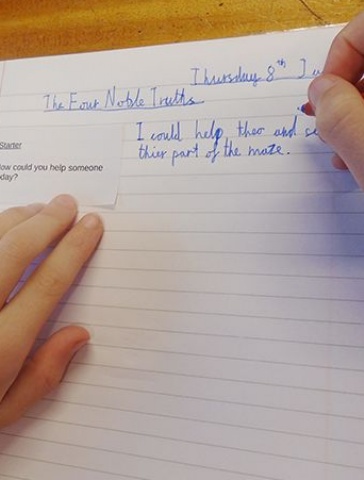 Thursday 8th J
The Four Noble Truths
Starter
ow could you help someone
day?
I could help theo and s
thier part of the maze.